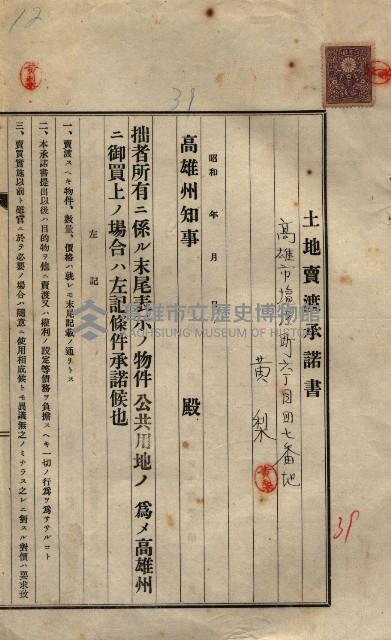 12
39
土地賣渡承諾書
高雄市塩埕町六丁目四七番地
黄梨
昭和 年 月 日
高雄州知事 殿
拙者所有ニ係ル末尾表示ノ物件公共用地ノ爲メ高雄州
ニ御買上ノ場合ハ左記條件承諾候也
左記
一、賣渡スヘキ物件、數量、價格ハ就レモ末尾記載ノ通リトス
二、本承諾書提出以後ハ目的物ヲ他ニ賣渡又ハ權利ノ設定等債務ヲ負擔スヘキ一切ノ行爲ヲ爲サヽルコト
三、賣買實施以前ト雖官ニ於テ必要ノ場合ハ隨意ニ使用相成候トモ異議無之ノミナラス之レニ對スル對價ハ要求致
39
高雄市立歷史博物館
KAOHSIUNG MUSEUM OF HISTORY